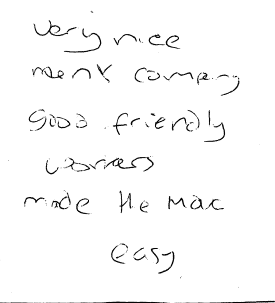 very nice
ment company
good friendly
workers
made the mac
easy